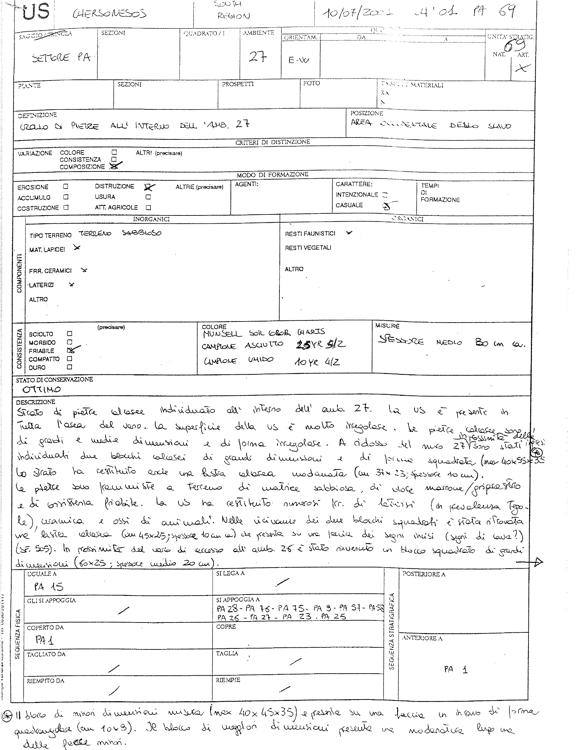 US CHERSONESOS SOUTH REGION 10/07/2001 PA 69
SETTORE PA SEZIONI QUADRATO/I AMBIENTE 27 ORIENTAM. E-W DA A UNITÀ STRATIG. 69 NAT. ART. X
PIANTE SEZIONI PROSPETTI FOTO MATERIALI
DEFINIZIONE
CROLLO DI PIETRE ALL'INTERNO DELL'AMB. 27
POSIZIONE
AREA OCCIDENTALE DELLO SCAVO
CRITERI DI DISTINZIONE
VARIAZIONE COLORE ALTRI (precisare)
CONSISTENZA
COMPOSIZIONE X
MODO DI FORMAZIONE
EROSIONE DISTRUZIONE X ALTRE (precisare) AGENTI: CARATTERE: TEMPI
ACCUMULO USURA INTENZIONALE DI
COSTRUZIONE ATT. AGRICOLE CASUALE X FORMAZIONE
COMPONENTI
INORGANICI ORGANICI
TIPO TERRENO TERRENO SABBIOSO RESTI FAUNISTICI X
MAT. LAPIDEI X RESTI VEGETALI
FRR. CERAMICI X ALTRO
LATERIZI X
ALTRO
CONSISTENZA
(precisare)
SCIOLTO
MORBIDO
FRIABILE X
COMPATTO
DURO
COLORE
MUNSELL SOIL COLOR CHARTS
CAMPIONE ASCIUTTO 2.5 YR 5/2
CAMPIONE UMIDO 10 YR 4/2
MISURE
SPESSORE MEDIO 30 cm ca.
STATO DI CONSERVAZIONE
OTTIMO
DESCRIZIONE
Strato di pietre calcaree individuato all'interno dell'amb. 27. La US è presente in
tutta l'area del vano. La superficie della US è molto irregolare. Le pietre calcaree sono
di grandi e medie dimensioni e di forma irregolare. A ridosso del muro 27/ sono stati
individuati due blocchi calcarei di grandi dimensioni e di forma squadrata (max 40x55x35
Lo strato ha restituito anche una lastra calcarea modanata (cm 37x23; spessore 10 cm).
Le pietre sono frammiste a terreno di matrice sabbiosa, di colore marrone/grigiastro
e di consistenza friabile. La US ha restituito numerosi frr. di laterizi (in prevalenza tego-
le), ceramica e ossi di animali. Nelle vicinanze dei due blocchi squadrati è stata ritrovata
una lastra calcarea (cm 45x25; spessore 10 cm ca) che presenta su una faccia dei segni incisi (segni di cava?)
(SF. 505). In prossimità del vano di accesso all'amb 26 è stato rinvenuto un blocco squadrato di grandi
dimensioni (60x25; spessore medio 20 cm).
SEQUENZA FISICA
UGUALE A PA 15 SI LEGA A /
GLI SI APPOGGIA / SI APPOGGIA A PA 28 - PA 76 - PA 75 - PA 9 - PA 57 - PA 58
PA 26 - PA 27 - PA 23 - PA 25
COPERTO DA PA 1 COPRE
TAGLIATO DA / TAGLIA /
RIEMPITO DA / RIEMPIE /
SEQUENZA STRATIGRAFICA
POSTERIORE A
ANTERIORE A
PA 1
Il blocco di minori dimensioni misura (max 40x45x35) e presenta su una faccia un incavo di forma
quadrangolare (cm 10x9). Il blocco di maggiori dimensioni presenta una modanatura lungo una
delle facce minori.